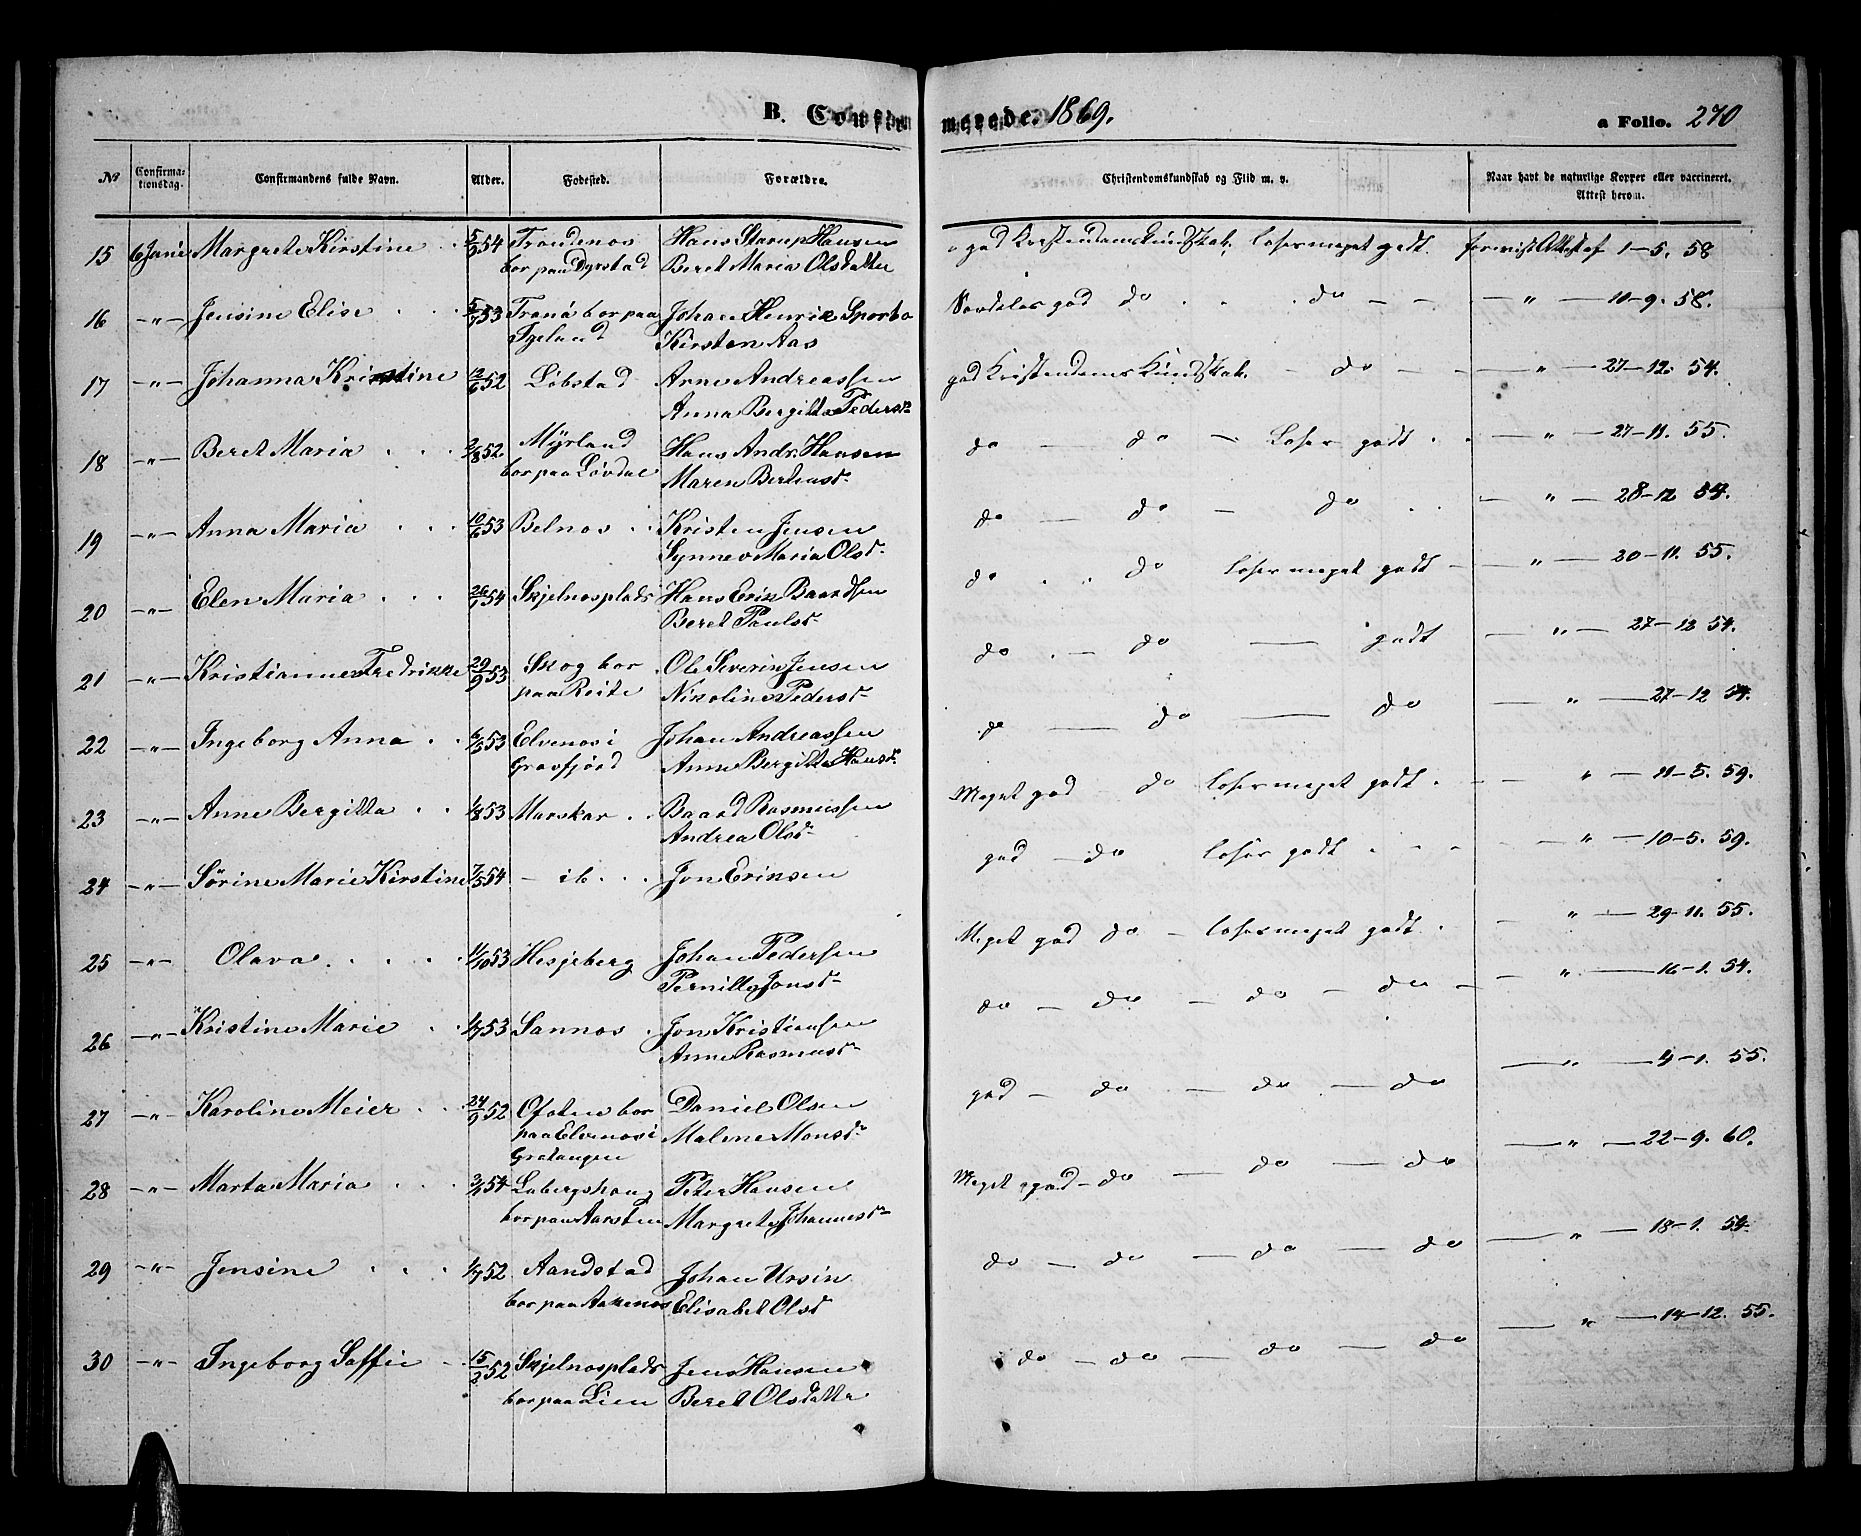 B. Confirmerede. 1869. a Folio. 270
No Confirmationsdag. Confirmandens fulde Navn. Alder. Fødested. Forældre. Christendomskundskab og Flid m. v. Naar havt de naturlige Kopper eller vaccineret. Attest herom.
15 6 Juni Margrete Kirstine 5/9 54 Trondenes Hans Starup Hansen god Kristendomskundskab. læser meget godt. forevist Attest af 1-5. 58
bor paa Dyrstad Beret Maria Olsdatter
16 -"- Jensine Elise 5/9 53 Tranø bor paa Johan Henrik Sporbo Særdeles god do do -"- 10-9. 58.
Tyeland Kirsten Aas
17 -"- Johanna Kristine 12/6 52 Løbstad Arne Andreassen god Kristendomskundskab. - do -"- 27-12. 54.
Anna Bergitta Pedersdr
18 -"- Beret Maria 2/8 52 Myrland Hans Andr. Hansen do - do - læser godt -"- 27-11. 55.
bor paa Løvdal Maren Berteusdr
19 -"- Anna Maria 10/6 53 Belnes Kristen Jensen do - do - do -"- 28-12 54.
Synnev Maria Olsdr
20 -"- Elen Maria 26/1 54 Skjelnesplads Hans Erik Baardsen do do læser meget godt -"- 20-11. 55.
Beret Paulsdr
21 -"- Kristianne Fredrikke 29/9 53 Skog bor Ole Severin Jensen do - do - godt -"- 27-12 54.
paa Reite Nikoline Pedersdr
22 -"- Ingeborg Anna 6/5 53 Elvenes i Johan Andreassen do - do - do -"- 27-12 54.
Gravfjord Anne Bergitta Hansdr
23 -"- Anne Bergitta 1/8 53 Marskar Baard Rasmussen Meget god - do læser meget godt -"- 11-5. 59.
Andrea Olsdr
24 -"- Sørine Marie Kirstine 7/5 54 - ib. Jon Eriksen god - do læser godt -"- 10-5. 59.
25 -"- Olava 1/10 53 Hesjeberg Johan Pedersen Meget god do - læser meget godt -"- 29-11. 55.
Pernille Jonsdr
26 -"- Kristine Marie 1/7 53 Sannes Jon Kristiansen do - do - do - do -"- 16-1. 54.
Anne Rasmusdr
27 -"- Karoline Meier 24/9 52 Ofoten bor Daniel Olsen god - do - do - do -"- 4-1. 55.
paa Elvenes i Malene Monsdr
Gratangen
28 -"- Marta Maria 54 Labergshaug Peter Hansen Meget god - do - do - do -"- 22-9. 60.
bor paa Aarsten Margrete Johannesdr
29 -"- Jensine 1/7 52 Aandstad Johan Ursin do - do - do - do -"- 18-1. 54.
bor paa Aakenes Elisabet Olsdr
30 -"- Ingeborg Soffie 15/2 52 Skjelnesplads Jens Hansen do - do - do - do -"- 14-12. 55.
bor paa Lien Beret Olsdatter